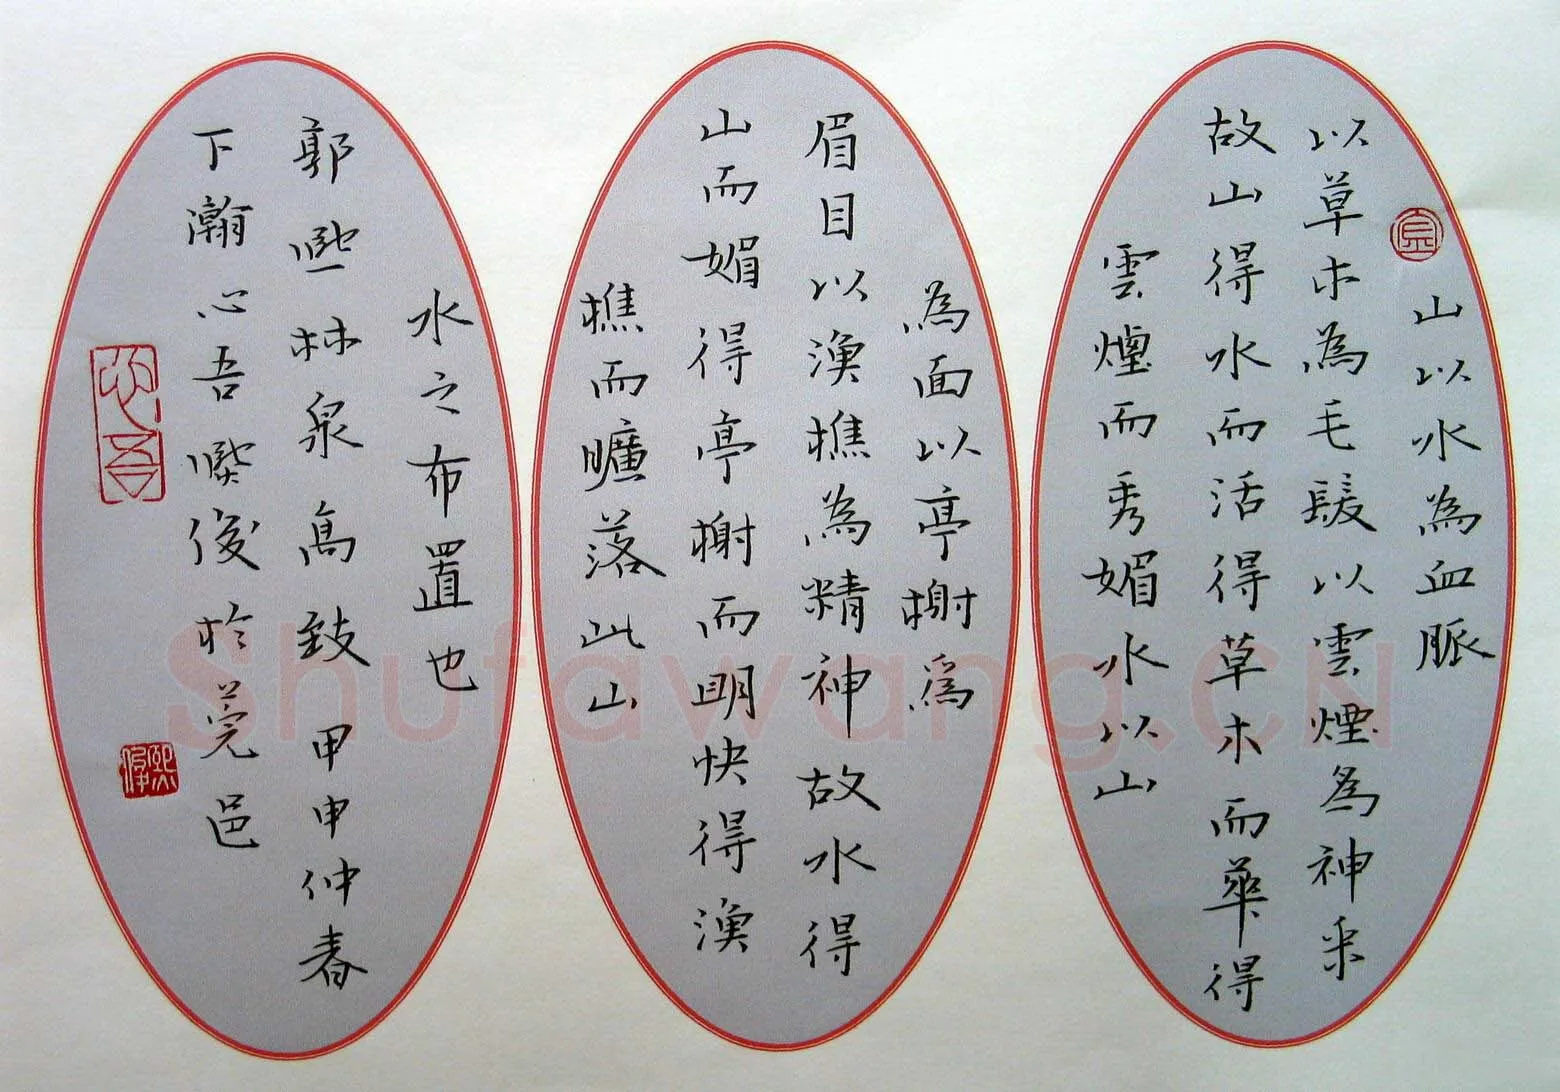 山以水為血脈
以草木為毛髮以雲煙為神采
故山得水而活得草木而華得
雲煙而秀媚水以山
為面以亭榭爲
眉目以漁樵為精神故水得
山而媚得亭榭而明快得漁
樵而曠落此山
水之布置也
郭熙林泉高致甲申仲春
下瀚心吾熙俊於莞邑
心吾
熙俊
Shufawang.CN